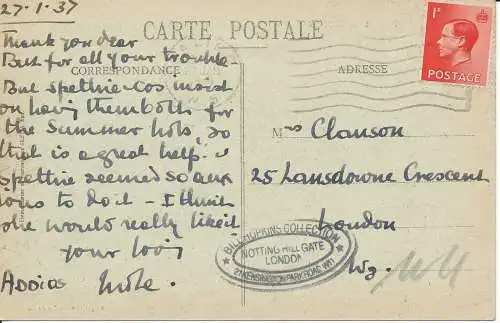 27.1.37
CARTE POSTALE
Thank you dear
But for all your trouble.
But Spettie - Cos moist
CORRESPONDANCE
ADRESSE
on having them both for
the Summer hols, so
that is a great help.
Spettie seemed so anx
ious to do it - I think
she would really like it
your
Adoios
Mrs Clanson
25 Lansdowne Crescent
London
W11
1D
POSTAGE
BILL HOPKINS COLLECTION
NOTTING HILL GATE
LONDON
21 KENSINGTON PARK ROAD. W11